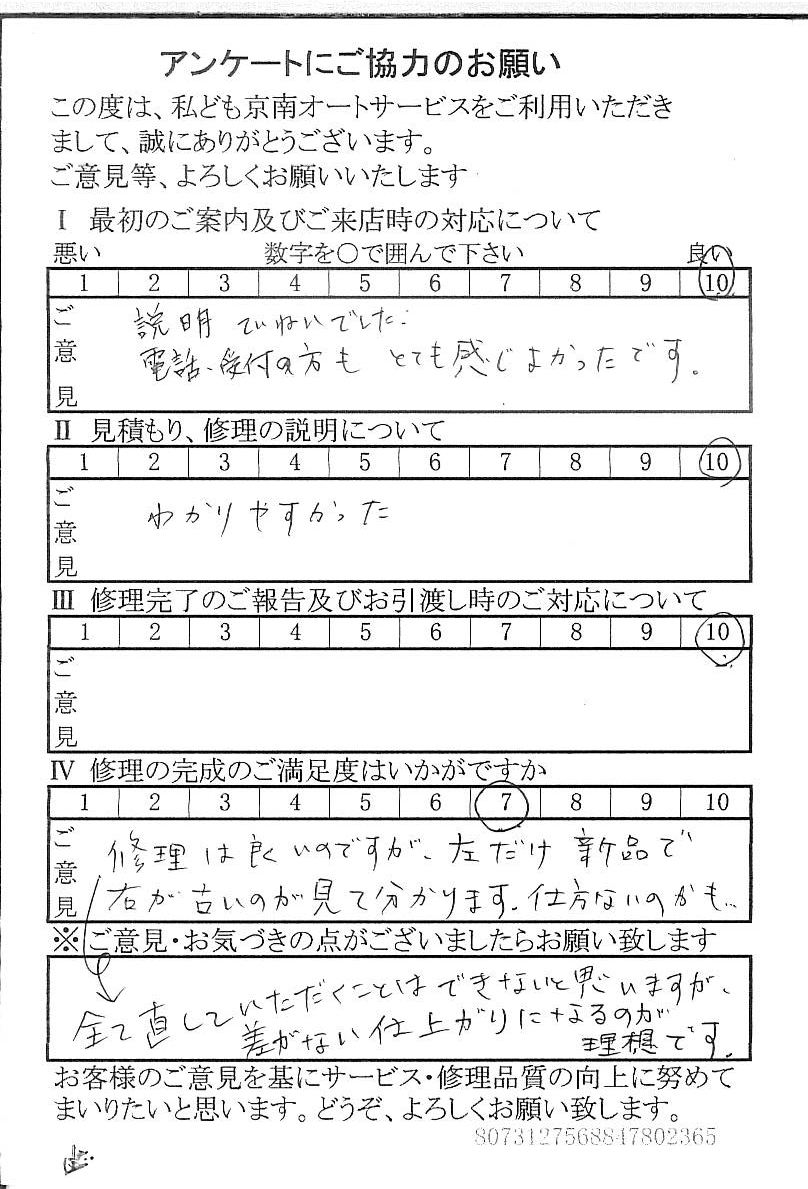 アンケートにご協力のお願い
この度は、私ども京南オートサービスをご利用いただき
まして、誠にありがとうございます。
ご意見等、よろしくお願いいたします
Ⅰ 最初のご案内及びご来店時の対応について
悪い 数字を〇で囲んで下さい 良い
1 2 3 4 5 6 7 8 9 10
ご意見
説明 ていねいでした.
電話、受付の方も とても感じよかったです。
Ⅱ 見積もり、修理の説明について
1 2 3 4 5 6 7 8 9 10
ご意見
わかりやすかった
Ⅲ 修理完了のご報告及びお引渡し時のご対応について
1 2 3 4 5 6 7 8 9 10
ご意見
Ⅳ 修理の完成のご満足度はいかがですか
1 2 3 4 5 6 7 8 9 10
ご意見
修理は良いのですが、左だけ新品で
右が古いのが見て分かります。仕方ないのかも…
※ご意見・お気づきの点がございましたらお願い致します
全て直していただくことはできないと思いますが、
差がない仕上がりになるのが
理想です。
お客様のご意見を基にサービス・修理品質の向上に努めて
まいりたいと思います。どうぞ、よろしくお願い致します。
8073127568847802365